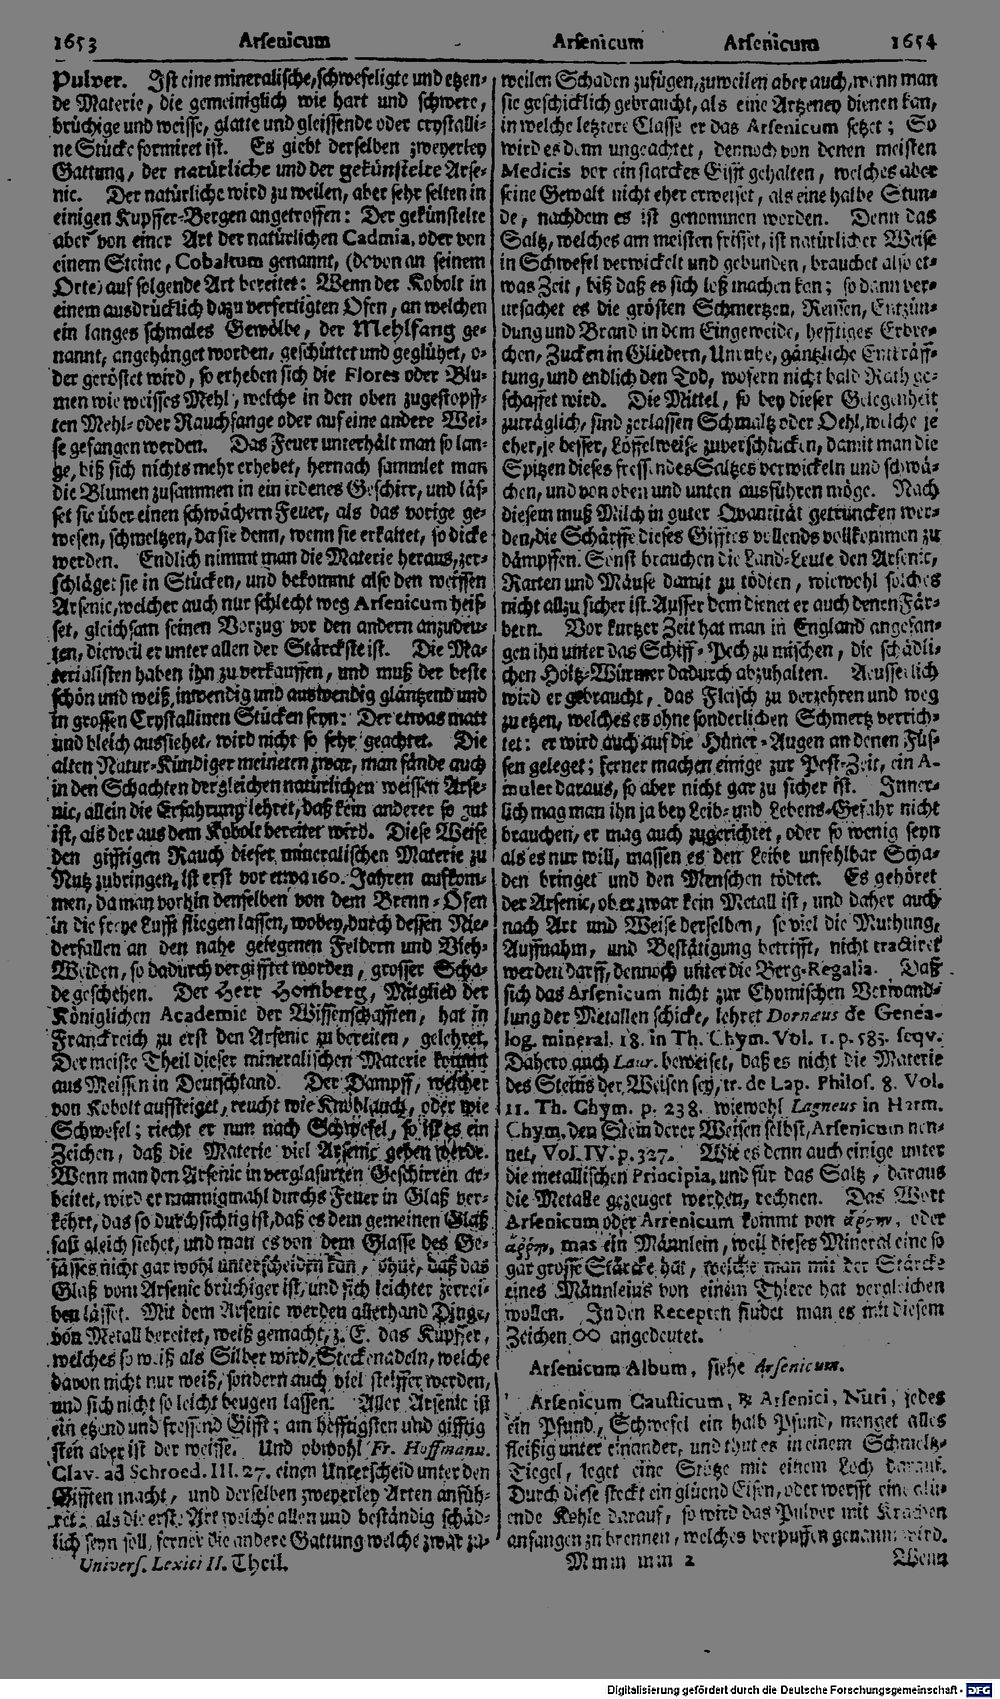 1653 Arsenicum
Arsenicum Arsenicum 1654
Pulver. Ist eine mineralische, schwefeligte und etzen-
de Materie, die gemeiniglich wie hart und schwere,
brüchige und weisse, glatte und gleissende oder crystalli-
ne Stücke formiret ist. Es giebt derselben zweyerley
Gattung, der natürliche und der gekünstelte Arse-
nic. Der natürliche wird zu weilen, aber sehr selten in
einigen Kupffer-Bergen angetroffen: Der gekünstelte
aber von einer Art der natürlichen Cadmia, oder von
einem Steine, Cobaltum genannt, (davon an seinem
Orte) auf folgende Art bereitet: Wenn der Kobolt in
einem ausdrücklich dazu verfertigten Ofen, an welchen
ein langes schmales Gewölbe, der Mehlfang ge-
nannt, angehänget worden, geschüttet und geglühet, o-
der geröstet wird, so erheben sich die Flores oder Blu-
men wie weisses Mehl, welche in den oben zugestopff-
ten Mehl- oder Rauchfange oder auf eine andere Wei-
se gefangen werden. Das Feuer unterhält man so lan-
ge, biß sich nichts mehr erhebet, hernach sammlet man
die Blumen zusammen in ein irdenes Geschirr, und läs-
set sie über einen schwächern Feuer, als das vorige ge-
wesen, schmeltzen, da sie denn, wenn sie erkaltet, so dicke
werden. Endlich nimmt man die Materie heraus, zer-
schläget sie in Stücken, und bekommt also den weissen
Arsenic, welcher auch nur schlecht weg Arsenicum heis-
set, gleichsam seinen Vorzug vor den andern anzudeu-
ten, dieweil er unter allen der Stärckste ist. Die Ma-
terialisten haben ihn zu verkauffen, und muß der beste
schön und weiß, inwendig und auswendig gläntzend und
in grossen Crystallinen Stücken seyn: Der etwas matt
und bleich aussiehet, wird nicht so sehr geachtet. Die
alten Natur-Kündiger meineten zwar, man fände auch
in den Schachten dergleichen natürlichen weissen Arse-
nic, allein die Erfahrung lehret, daß kein anderer so gut
ist, als der aus dem Kobolt bereitet wird. Diese Weise
den gifftigen Rauch dieser mineralischen Materie zu
Nutz zubringen, ist erst vor etwa 160. Jahren aufkom-
men, da man vorhin denselben von dem Brenn-Ofen
in die freye Lufft fliegen lassen, wobey, durch dessen Nie-
derfallen an den nahe gelegenen Feldern und Vieh-
Weiden, so dadurch vergifftet worden, grosser Scha-
de geschehen. Der Herr Homberg, Mitglied der
Königlichen Academie der Wissenschafften, hat in
Franckreich zu erst den Arsenic zu bereiten, gelehret.
Der meiste Theil dieser mineralischen Materie kommt
aus Meissen in Deutschland. Der Dampff, welcher
von Kobolt auffsteiget, reucht wie Knoblauch, oder wie
Schwefel; riecht er nun nach Schwefel, so ist es ein
Zeichen, daß die Materie viel Arsenic geben werde.
Wenn man den Arsenic in verglasurten Geschirren ar-
beitet, wird er mannigmahl durchs Feuer in Glaß ver-
kehrt, das so durchsichtig ist, daß es dem gemeinen Glaß
fast gleich siehet, und man es von dem Glasse des Ge-
fässes nicht gar wohl unterscheiden kan, ohne, daß das
Glaß vom Arsenic brüchiger ist, und sich leichter zerrei-
ben lässet. Mit dem Arsenic werden allerhand Dinge,
von Metall bereitet, weiß gemacht, z. E. das Kupffer,
welches so weiß als Silber wird, Stecknadeln, welche
davon nicht nur weiß, sondern auch viel steiffer werden,
und sich nicht so leicht beugen lassen. Aller Arsenic ist
ein etzend und fressend Gifft; am hefftigsten und gifftig
sten aber ist der weisse. Und obwohl Fr. Hoffmann.
Clav. ad Schroed. III. 27. einen Unterscheid unter den
Gifften macht, und derselben zweyerley Arten anfüh-
ret; als die erste Art welche allen und beständig schäd-
lich seyn soll, ferner die andere Gattung welche zwar zu-
Univers. Lexici II. Theil.
weilen Schaden zufügen, zuweilen aber auch, wenn man
sie geschicklich gebraucht, als eine Artzeney dienen kan,
in welche letztere Classe er das Arsenicum setzet; So
wird es denn ungeachtet, dennoch von denen meisten
Medicis vor ein starckes Gifft gehalten, welches aber
seine Gewalt nicht eher erweiset, als eine halbe Stun-
de, nachdem es ist genommen worden. Denn das
Saltz, welches am meisten frisset, ist natürlicher Weise
in Schwefel verwickelt und gebunden, brauchet also et-
was Zeit, biß daß es sich loß machen kan; so dann ver-
ursachet es die grösten Schmertzen, Reissen, Entzün-
dung und Brand in dem Eingeweide, hefftiges Erbre-
chen, Zucken in Gliedern, Unruhe, gäntzliche Entkräff-
tung, und endlich den Tod, wofern nicht bald Rath ge-
schaffet wird. Die Mittel, so bey dieser Gelegenheit
zuträglich, sind zerlassen Schmaltz oder Oehl, welche je
eher, je besser, Löffelweise zuverschlucken, damit man die
Spitzen dieses fressendes Saltzes verwickeln und schwä-
chen, und von oben und unten ausführen möge. Nach
diesem muß Milch in guter Qvantität getruncken wer-
den, die Schärffe dieses Gifftes vollends vollkommen zu
dämpffen. Sonst brauchen die Land-Leute den Arsenic,
Ratten und Mäuse damit zu tödten, wiewohl solches
nicht allzu sicher ist. Ausser dem dienet er auch denen Fär-
bern. Vor kurtzer Zeit hat man in England angefan-
gen ihn unter das Schiff-Pech zu mischen, die schädli-
chen Holtz-Würmer dadurch abzuhalten. Aeusserlich
wird er gebraucht, das Fleisch zu verzehren und weg
zu etzen, welches es ohne sonderlichen Schmertz verrich-
tet: er wird auch auf die Hüner-Augen an denen Füs-
sen geleget; ferner machen einige zur Pest-Zeit, ein A-
mulet daraus, so aber nicht gar zu sicher ist. Inner-
lich mag man ihn ja bey Leib- und Lebens-Gefahr nicht
brauchen, er mag auch zugerichtet, oder so wenig seyn
als es nur will, massen es den Leibe unfehlbar Scha-
den bringet und den Menschen tödtet. Es gehöret
der Arsenic, ob er zwar kein Metall ist, und daher auch
nach Art und Weise derselben, so viel die Muthung,
Auffnahm, und Bestätigung betrifft, nicht tractiret
werden darff, dennoch unter die Berg-Regalia. Daß
sich das Arsenicum nicht zur Chymischen Verwand-
lung der Metallen schicke, lehret Dorneus de Genea-
log. mineral. 18. in Th. Chym. Vol. 1. p. 583. seqv.
Dahero auch Laur. beweiset, daß es nicht die Materie
des Steins der Weisen sey, tr. de Lap. Philos. 8. Vol.
11. Th. Chym. p. 238. wiewohl Lagneus in Harm.
Chym. den Stein derer Weisen selbst, Arsenicum nen-
net, Vol. IV. p. 327. Wie es denn auch einige unter
die metallischen Principia, und für das Saltz, daraus
die Metalle gezeuget werden, rechnen. Das Wort
Arsenicum oder Arrenicum kommt von ἄρσην, oder
ἄῤῥην, mas ein Männlein, weil dieses Mineral eine so
gar grosse Stärcke hat, welche man mit der Stärcke
eines Männleins von einem Thiere hat vergleichen
wollen. In den Recepten findet man es mit diesem
Zeichen ∞ angedeutet.
Arsenicum Album, siehe Arsenicum.
Arsenicum Causticum, ℞ Arsenici, Nitri, jedes
ein Pfund, Schwefel ein halb Pfund, menget alles
fleißig unter einander, und thut es in einem Schmeltz-
Tiegel, leget eine Stütze mit einem Loch darauf.
Durch diese steckt ein glüend Eisen, oder werfft eine glü-
ende Kohle darauf, so wird das Pulver mit Krachen
anfangen zu brennen, welches verpuffen genannt wird.
Mmm mm 2 Wenn
Digitalisierung gefördert durch die Deutsche Forschungsgemeinschaft - DFG